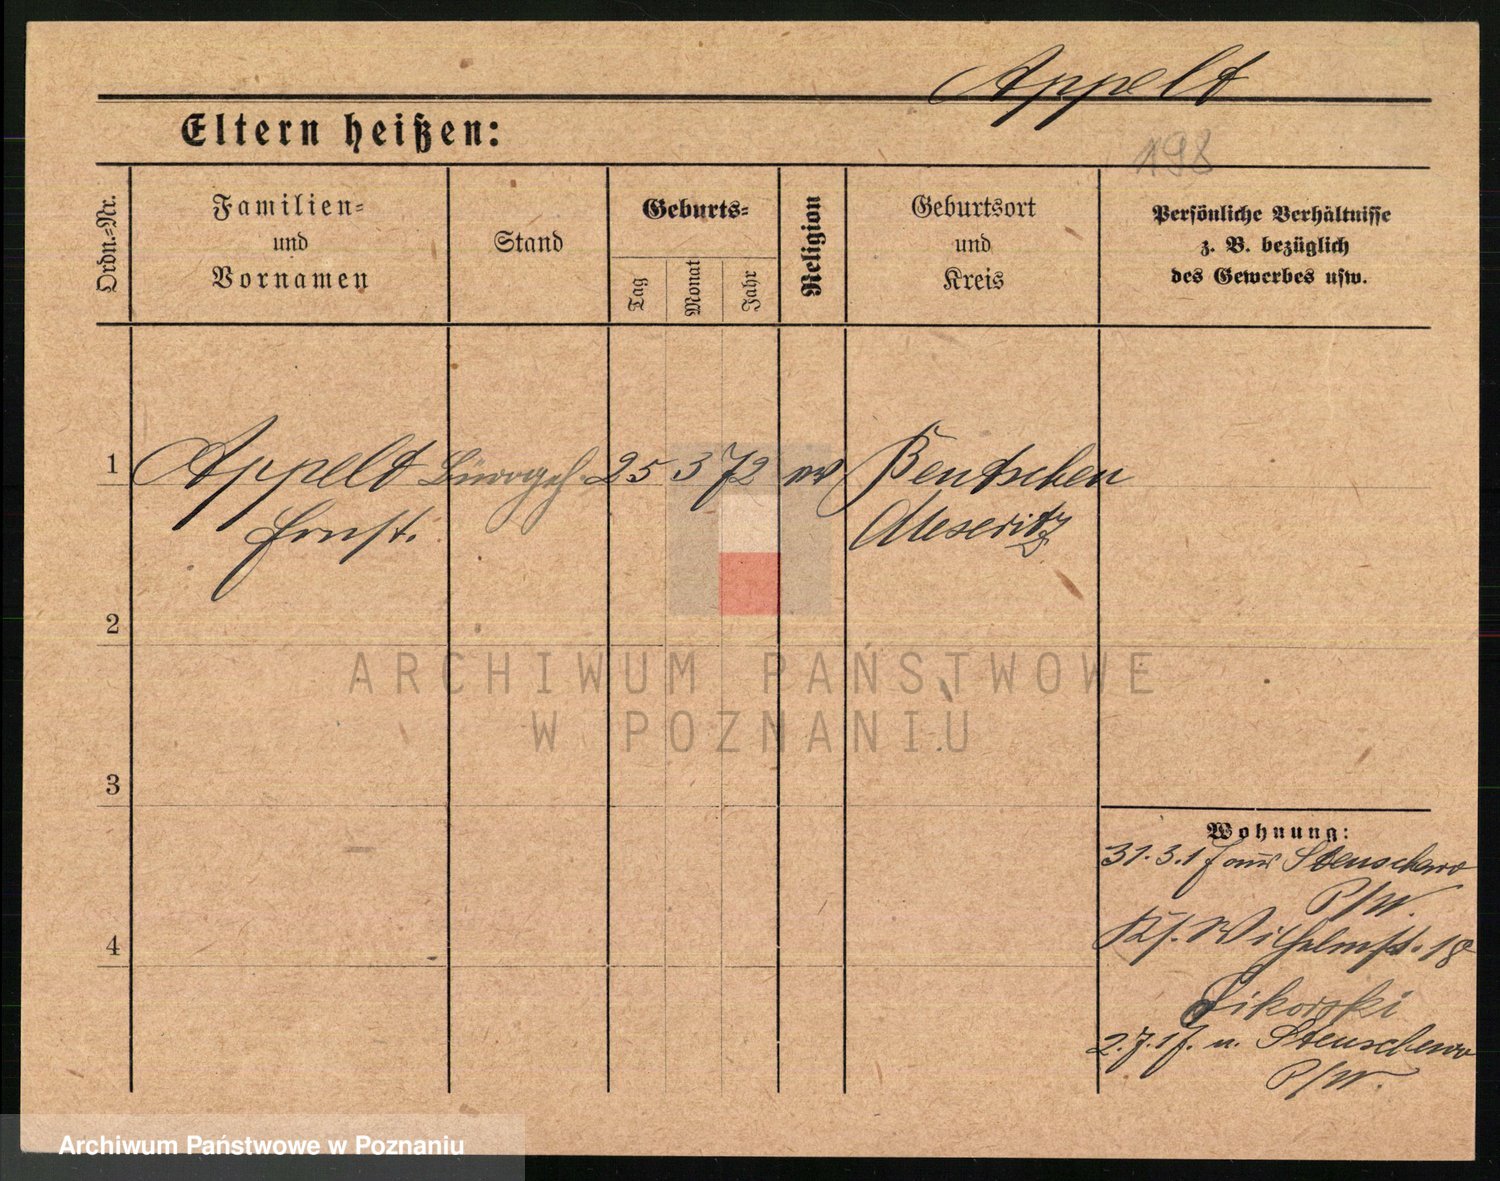 Appelt
198
Eltern heißen:
Ordn.-Nr.
Familien-
und
Vornamen
Stand
Geburts-
Tag
Monat
Jahr
Religion
Geburtsort
und
Kreis
Persönliche Verhältnisse
z. B. bezüglich
des Gewerbes usw.
1 Appelt Bürogeh. 25 3 72 ev Bentschen
Ernst. Meseritz
2
ARCHIWUM PAŃSTWOWE
W POZNANIU
3
Wohnung:
31.3.17 aus Stenschewo
P/W.
4
Wilhelmst. 18
Sikorski
2.7.17. n. Stenschewo
P/W.
Archiwum Państwowe w Poznaniu